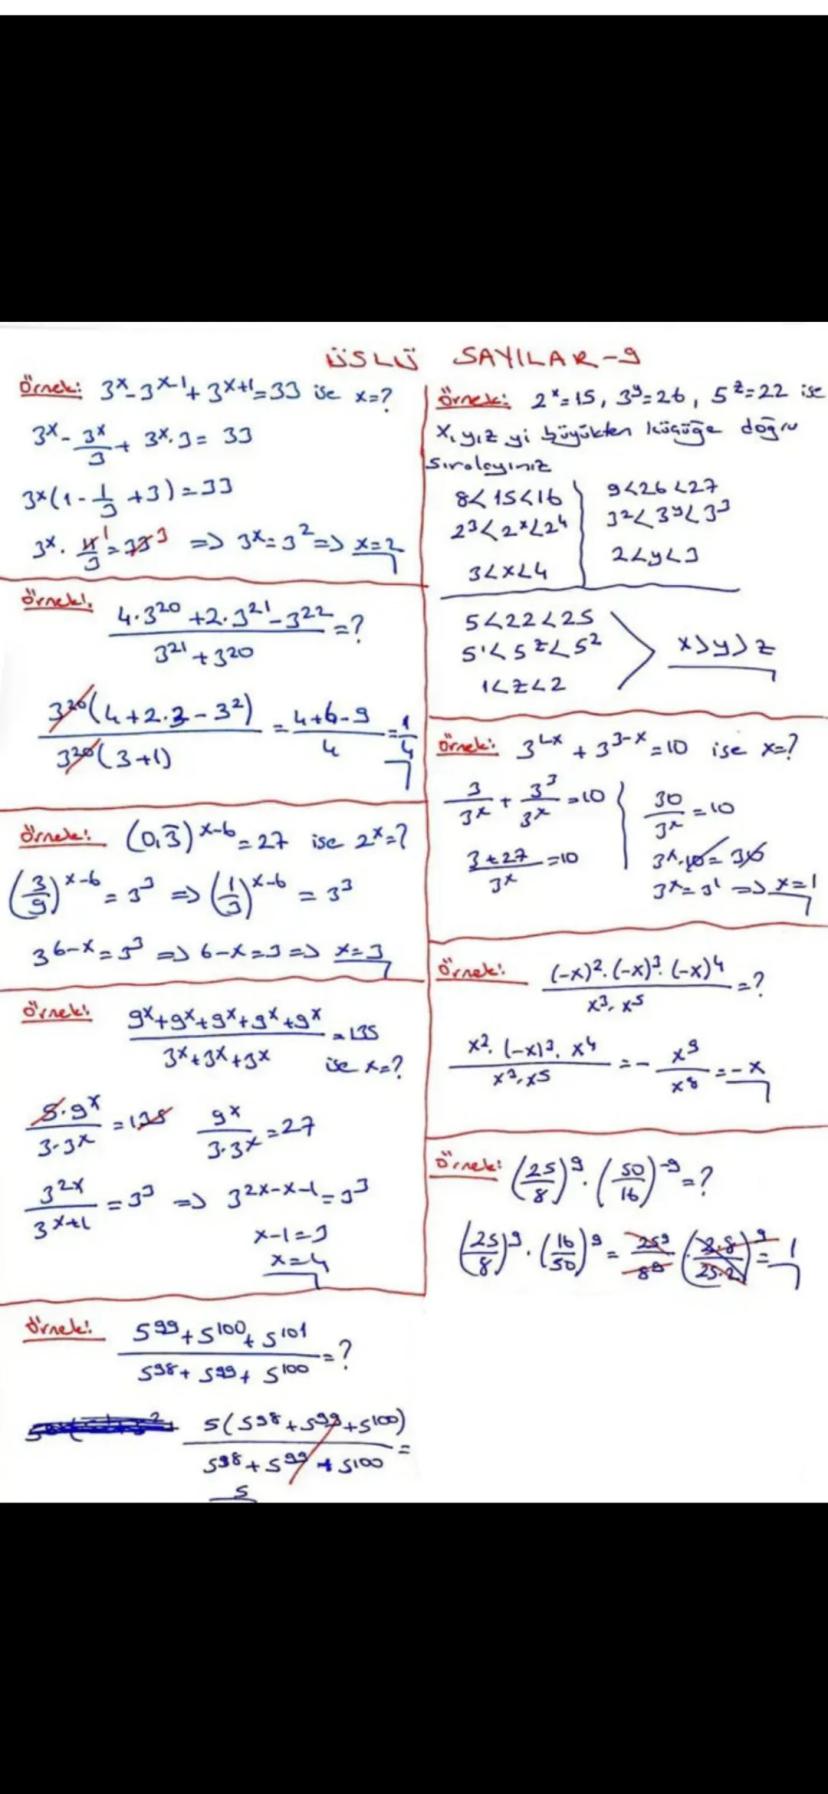 ÜSLÜ SAYILAR-9
Örnek: 3^x-3^(x-1)+3^(x+1)=33 ise x=?
3^x - 3^x/3 + 3^x.3 = 33
3^x(1-1/3+3)=33
3^x . 11/3 = 33 3 => 3^x=3^2 => x=2
Örnek:
(4.3^20+2.3^21-3^22)/(3^21+3^20)=?
3^20(4+2.3-3^2)/3^20(3+1) = (4+6-9)/4 = 1/4
Örnek: (0,3̅)^(x-6)=27 ise 2^x=?
(3/9)^(x-6)=3^3 => (1/3)^(x-6)=3^3
3^(6-x)=3^3 => 6-x=3 => x=3
Örnek: (9^x+9^x+9^x+9^x+9^x)/(3^x+3^x+3^x)=135
ise x=?
5.9^x/3.3^x=135 9^x/3.3^x=27
3^(2x)/3^(x+1)=3^3 => 3^(2x-x-1)=3^3
x-1=3
x=4
Örnek: (5^99+5^100+5^101)/(5^98+5^99+5^100)=?
5(5^98+5^99+5^100)/(5^98+5^99+5^100)=
5
Örnek: 2^x=15, 3^y=26, 5^z=22 ise
x,y,z yi büyükten küçüğe doğru
sıralayınız
8<15<16 9<26<27
2^3<2^x<2^4 3^2<3^y<3^3
3<x<4 2<y<3
5<22<25
5^1<5^z<5^2 x>y>z
1<z<2
Örnek: 3^(1-x)+3^(3-x)=10 ise x=?
3/3^x+3^3/3^x=10 30/3^x=10
(3+27)/3^x=10 3^x.10=30
3^x=3^1 => x=1
Örnek: (-x)^2.(-x)^3.(-x)^4/x^3.x^5=?
x^2.(-x)^3.x^4/x^3.x^5=-x^9/x^8=-x
Örnek: (25/8)^9.(50/16)^-9=?
(25/8)^9.(16/50)^9=25^9/8^9(2.8/25.2)^9=1